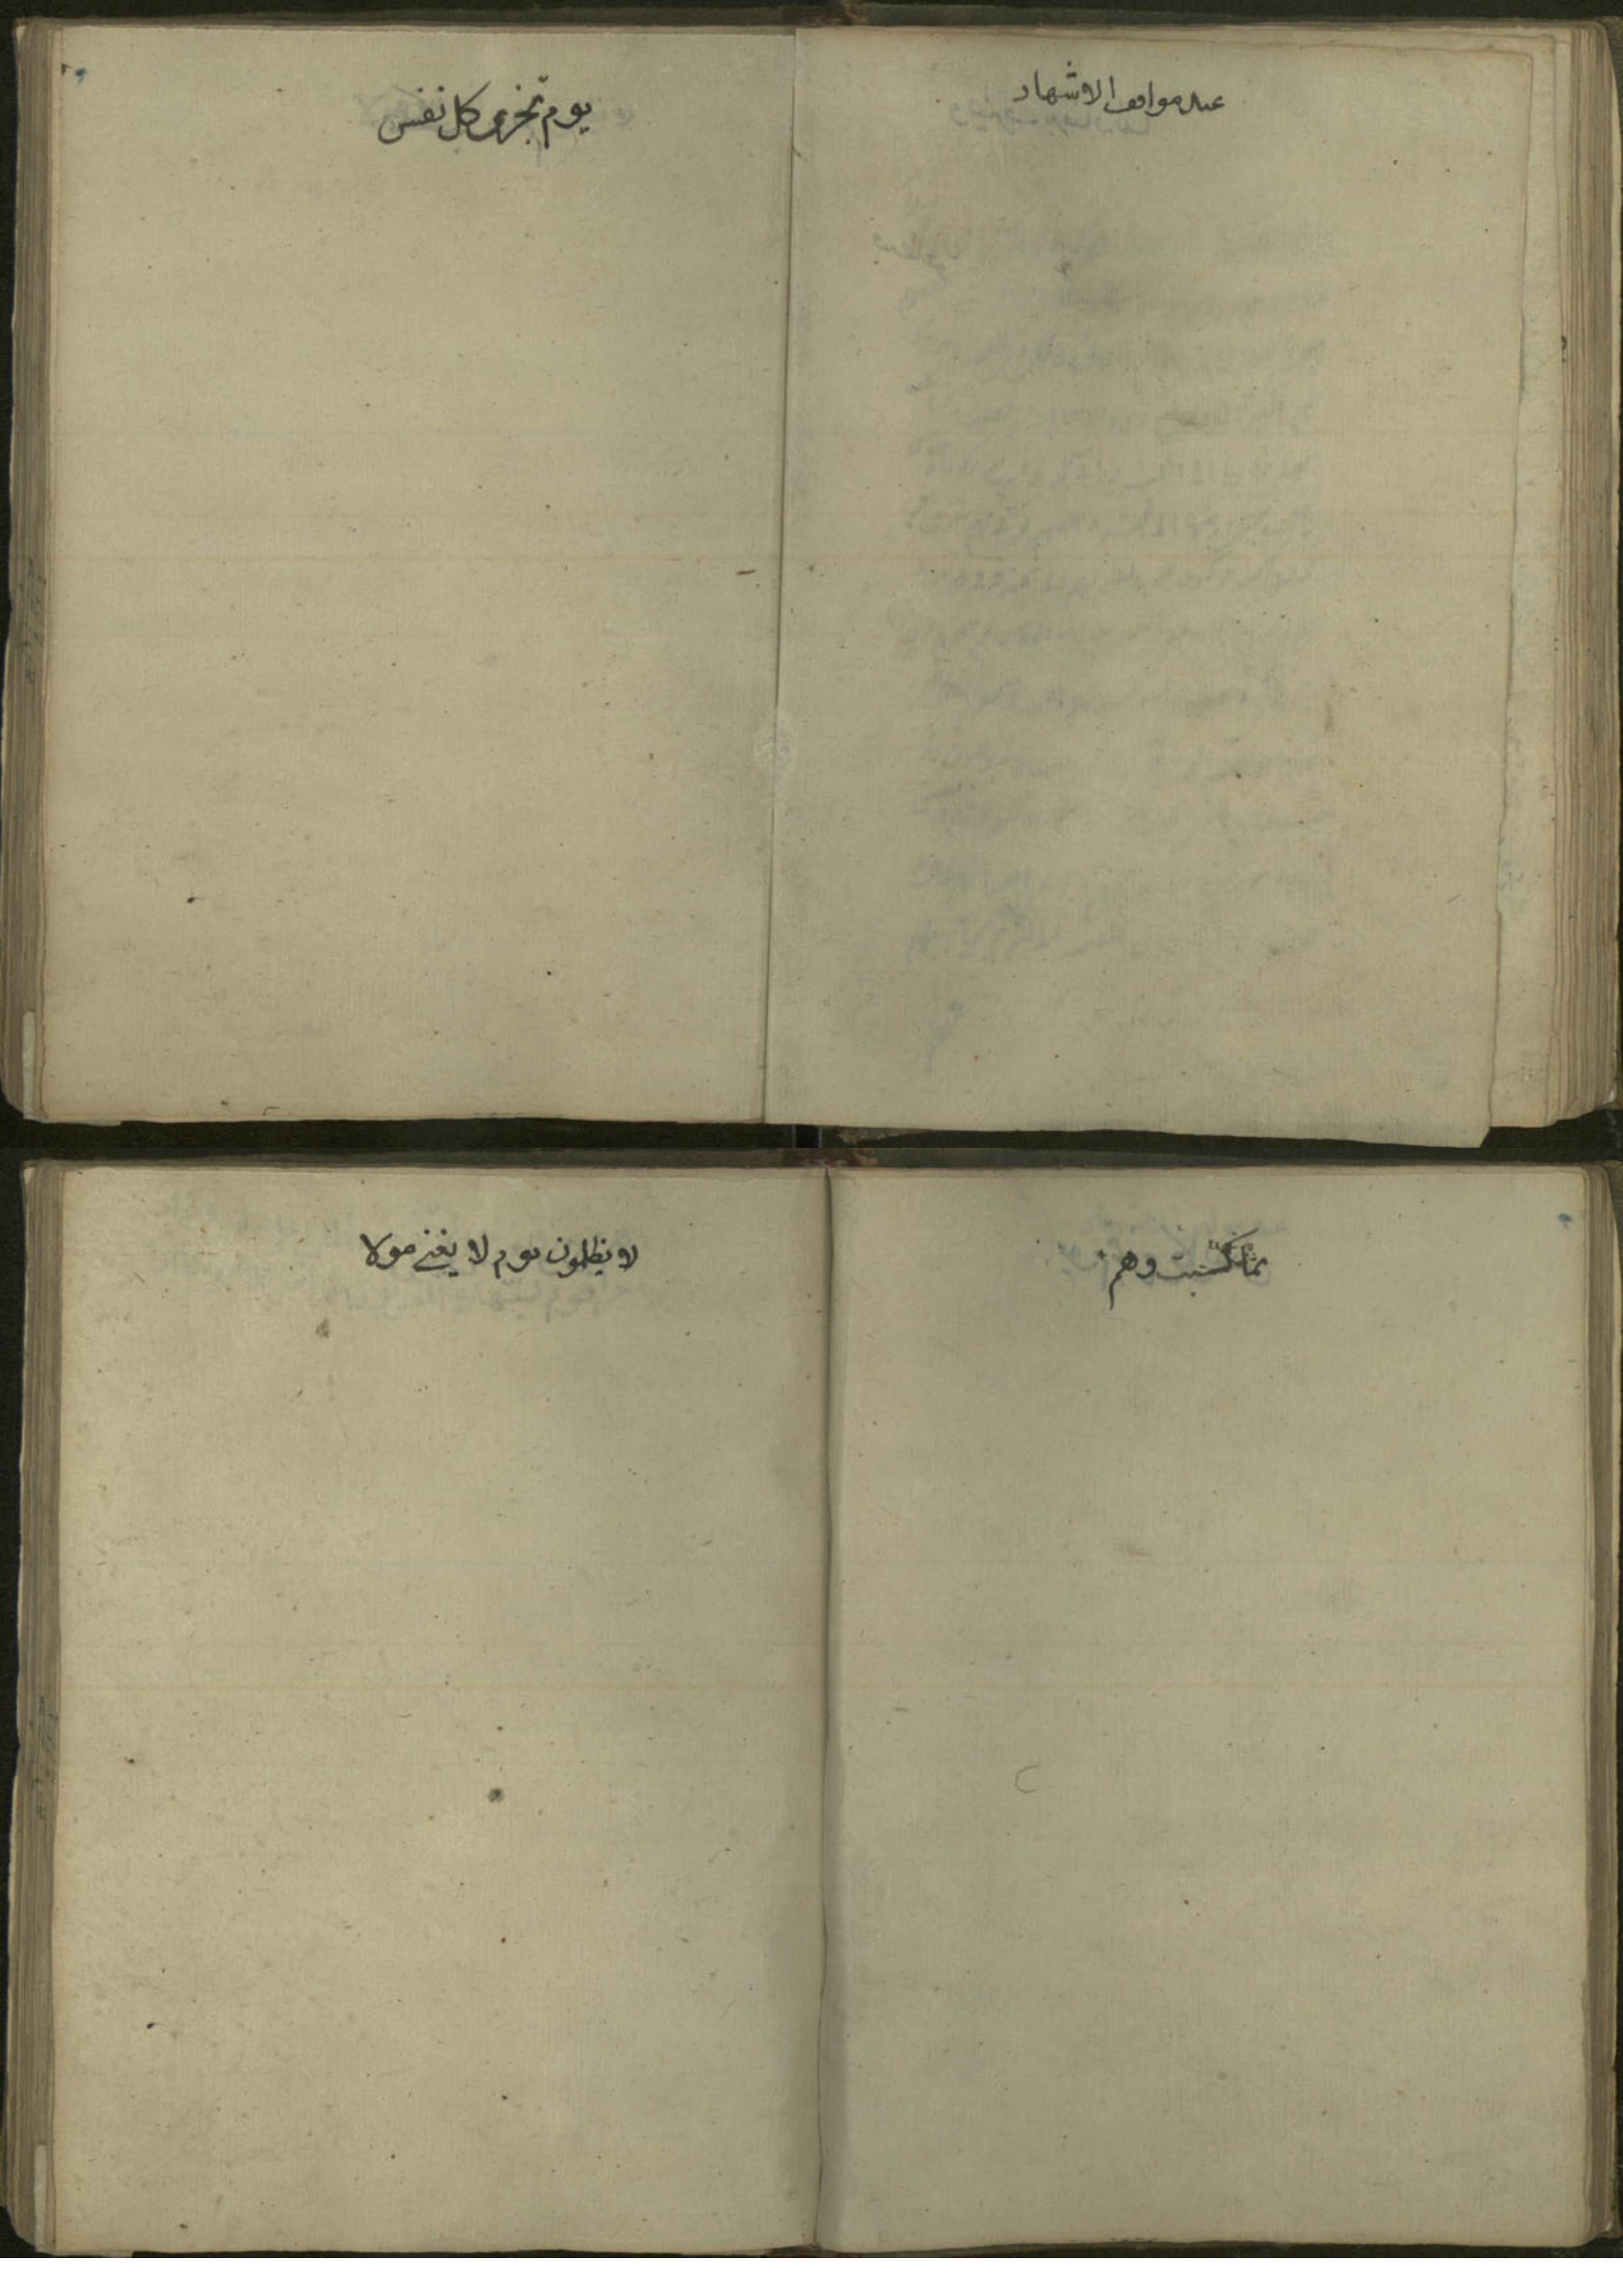 عند مواقف الاشهاد
يوم تجزى كل نفس
بما كسبت وهم
لا يظلمون يوم لا يغني مولا